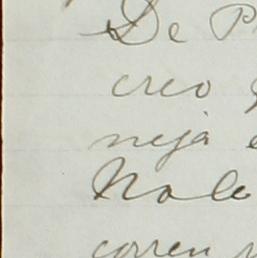 De
creo
neja
No le
corren